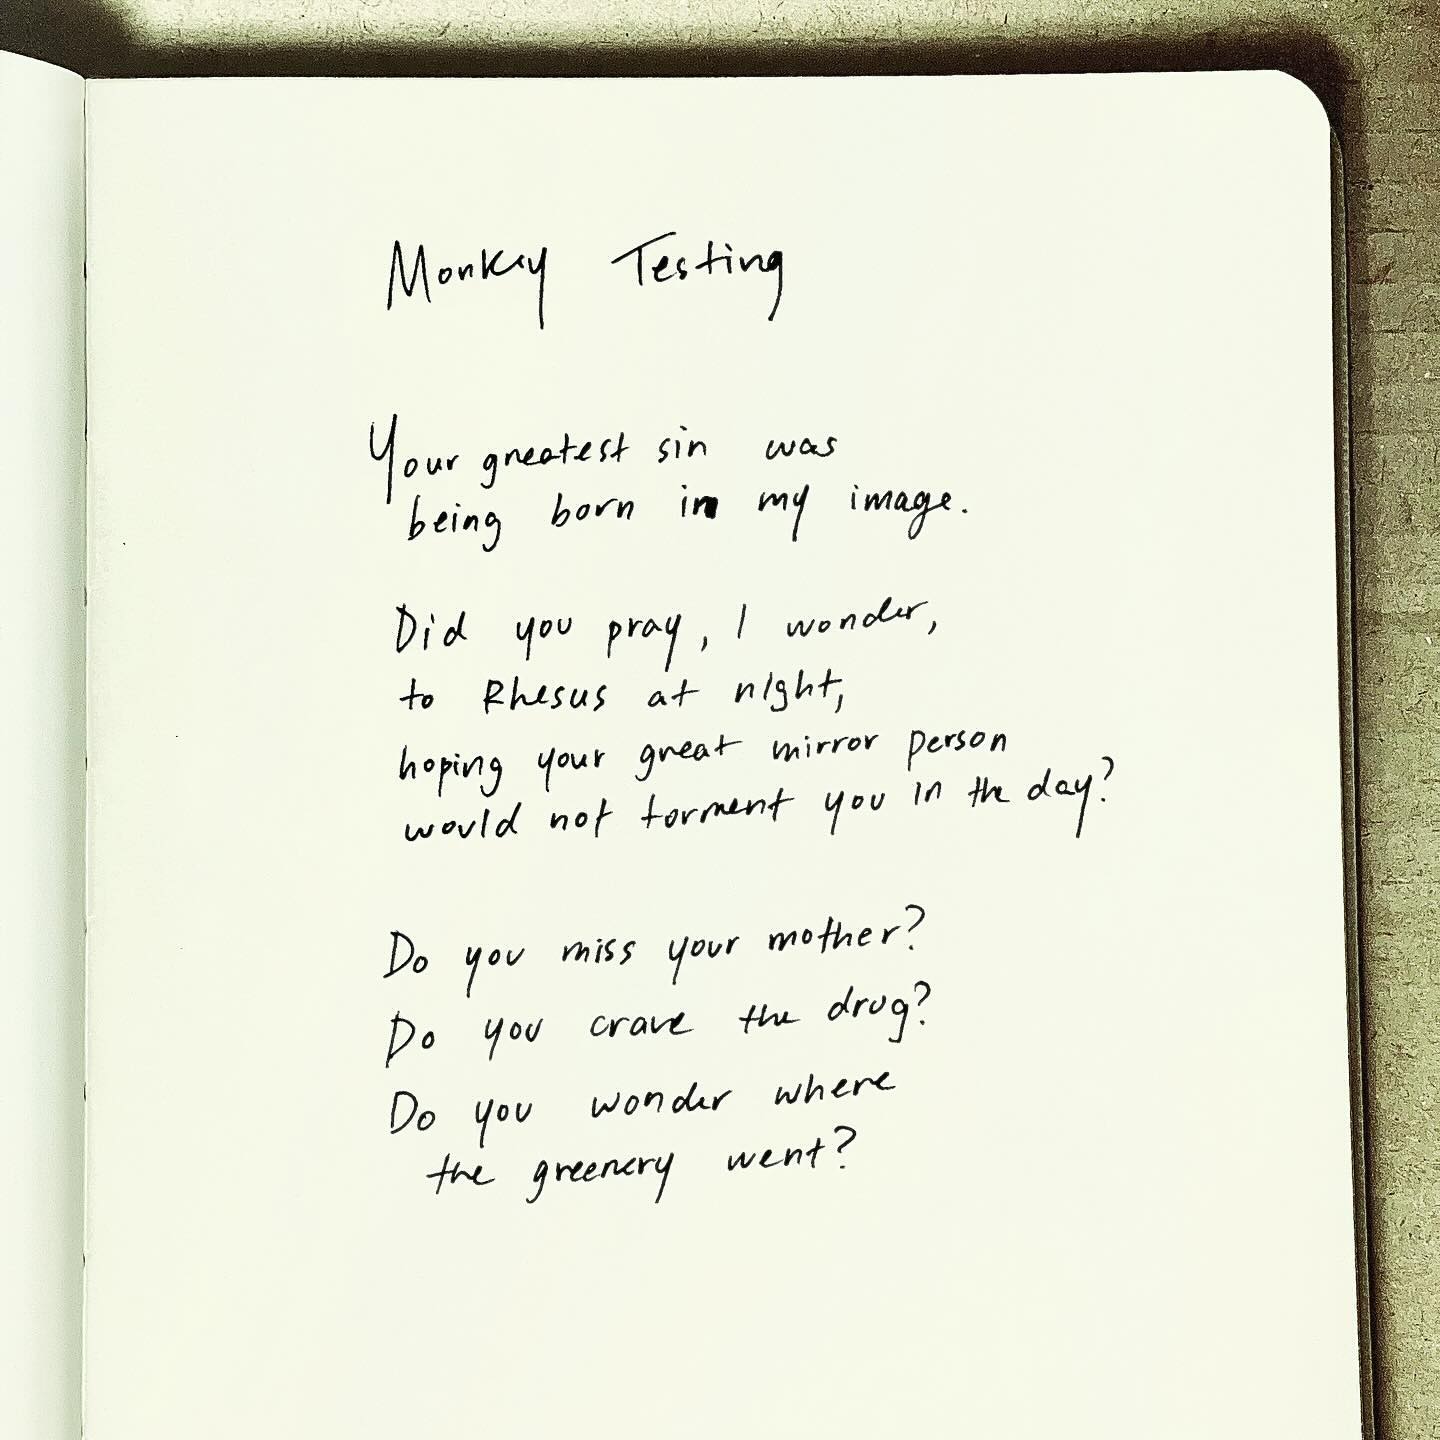 Monkey Testing
Your greatest sin was
being born in my image.
Did you pray, I wonder,
to Rhesus at night,
hoping your great mirror person
would not torment you in the day?
Do you miss your mother?
Do you crave the drug?
Do you wonder where
the greenery went?